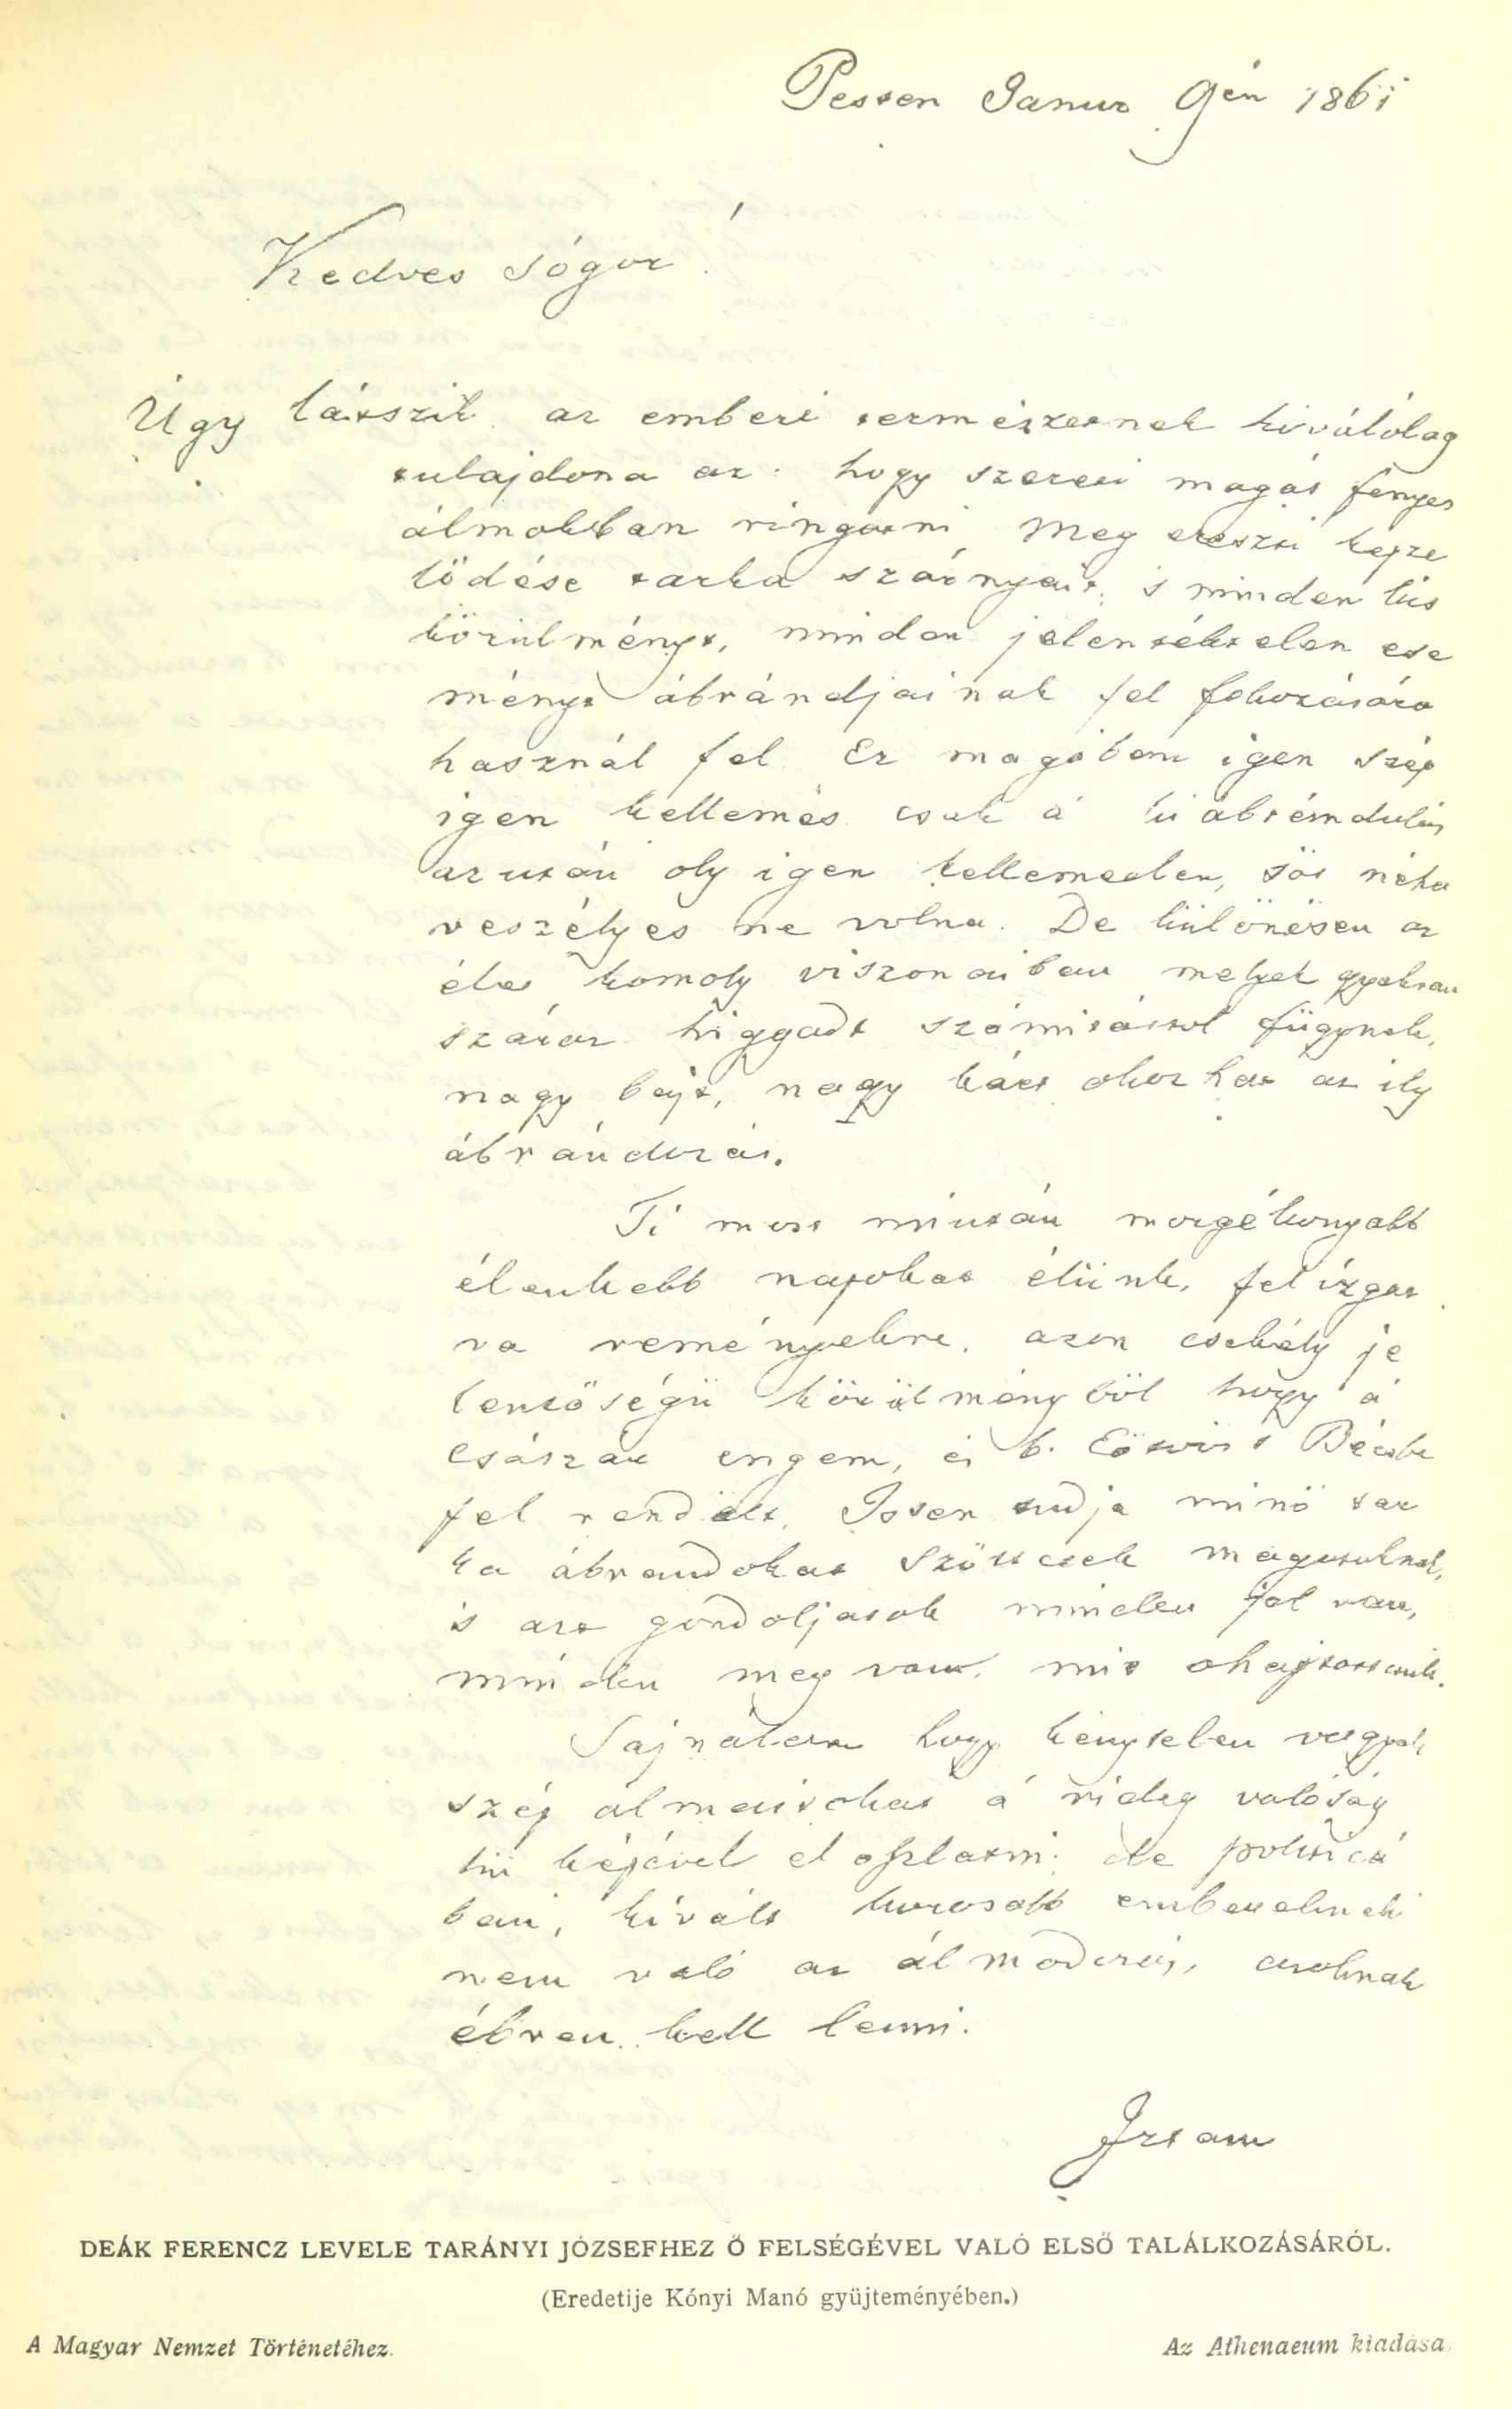 Pesten Januar 9én 1861
Kedves Sógor!
Úgy látszik az emberi természetnek kiválólag
tulajdona az: hogy szereti magát fényes
álmokban ringatni Meg ereszti kepze
lödése tarka szárnyait, s minden kis
körülményt, minden jelentéktelen ese
ményt ábrándjainak fel fokozására
használ fel. Ez magában igen szép
igen kellemes csak a' kiábrándulás
azután oly igen kellemetlen, söt néha
veszélyes ne volna. De különösen az
élet komoly viszonaiban melyek gyakran
száraz higgadt számitástol függnek,
nagy bajt, nagy kárt okozhat az ily
ábrándozás.
Ti most miután mozgékonyabb
élenkebb napokat élünk, fel izgat
va reményekre, azon csekély je
lentöségü körülményböl hogy a'
császár engem, és b. Eötvöst Bécsbe
fel rendelt, Isten tudja minö tar
ka ábrandokat szöttetek magatoknak,
's azt gondoljatok minden jol van,
minden meg van, mit ohajtottunk.
Sajnálom hogy kénytelen vagyok
szép álmaitokat a' rideg valóság
hü képével el oszlatni; de politicá
ban, kivált korosabb embereknek
nem való az álmodozás, azoknak
ébren kell lenni.
Irtam
DEÁK FERENCZ LEVELE TARÁNYI JÓZSEFHEZ Ő FELSÉGÉVEL VALÓ ELSŐ TALÁLKOZÁSÁRÓL.
(Eredetije Kónyi Manó gyüjteményében.)
A Magyar Nemzet Történetéhez.
Az Athenaeum kiadása.